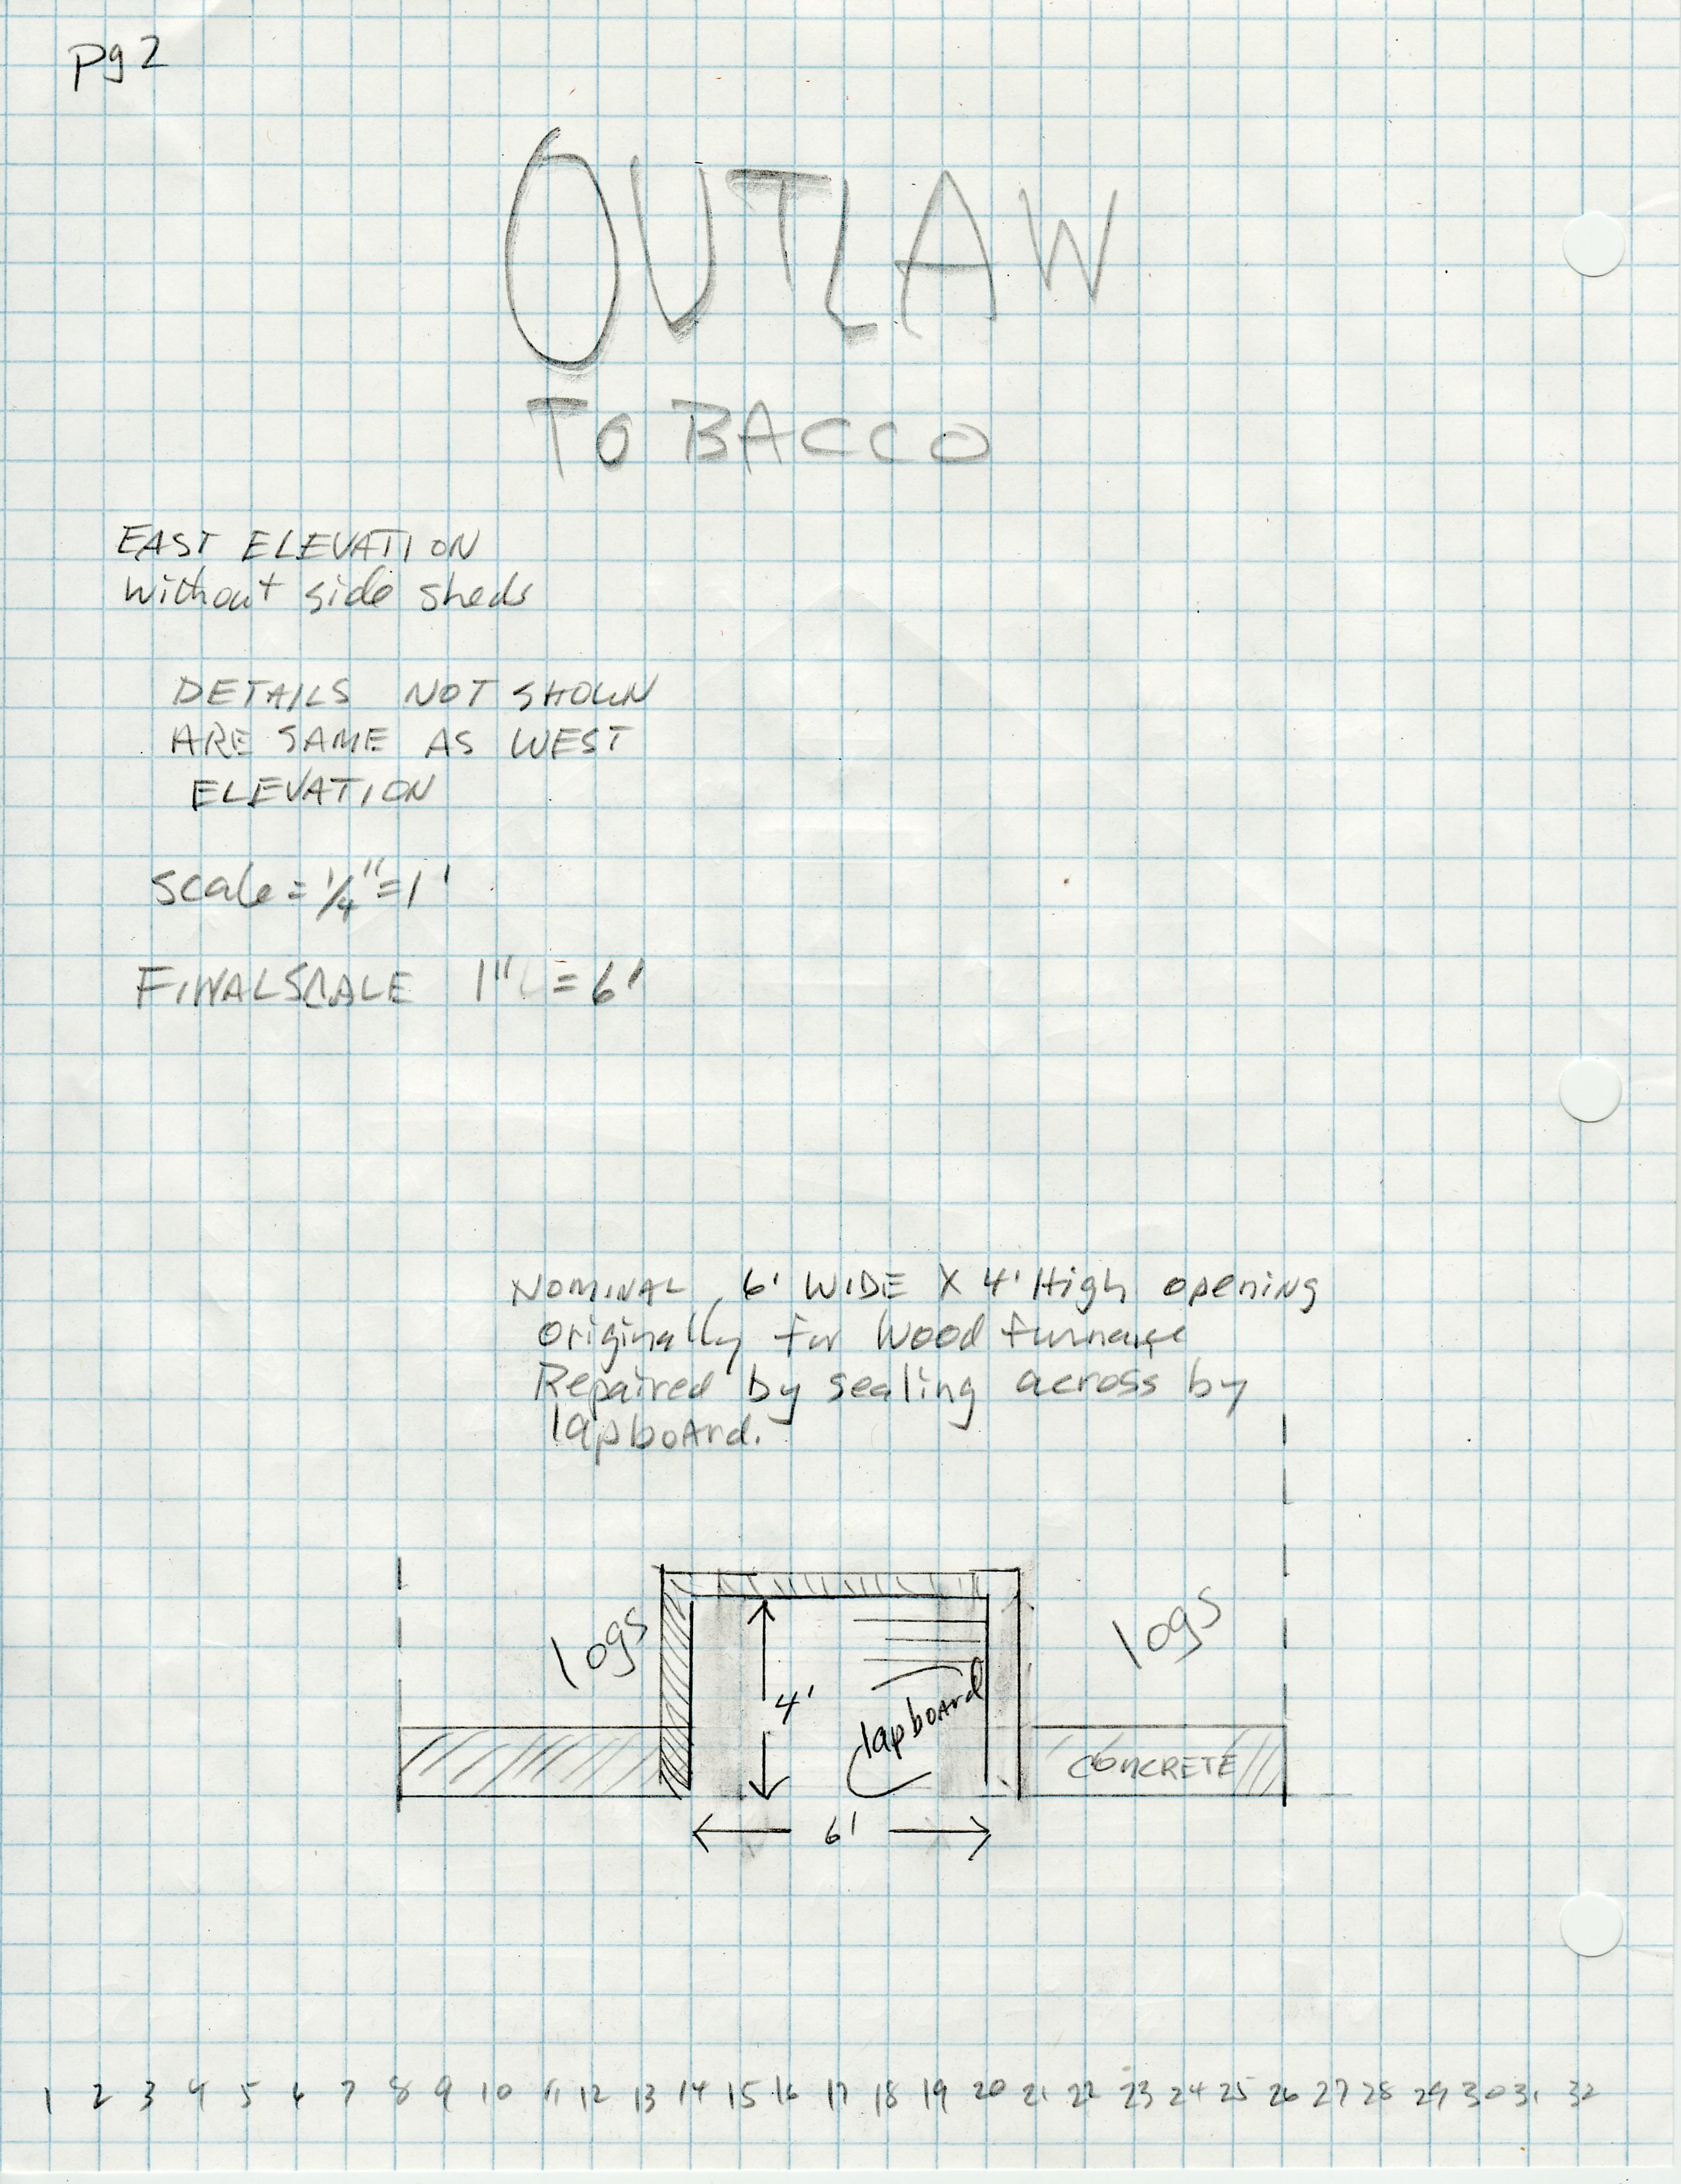 pg 2
OUTLAW
TOBACCO
EAST ELEVATION
without side sheds
DETAILS NOT SHOWN
ARE SAME AS WEST
ELEVATION
scale = 1/4" = 1'
FINAL SCALE 1" = 6'
NOMINAL 6' WIDE X 4' High opening
originally for Wood furnace
Repaired by sealing across by
lapboard.
logs
logs
4'
lapboard
CONCRETE
6'
1 2 3 4 5 6 7 8 9 10 11 12 13 14 15 16 17 18 19 20 21 22 23 24 25 26 27 28 29 30 31 32